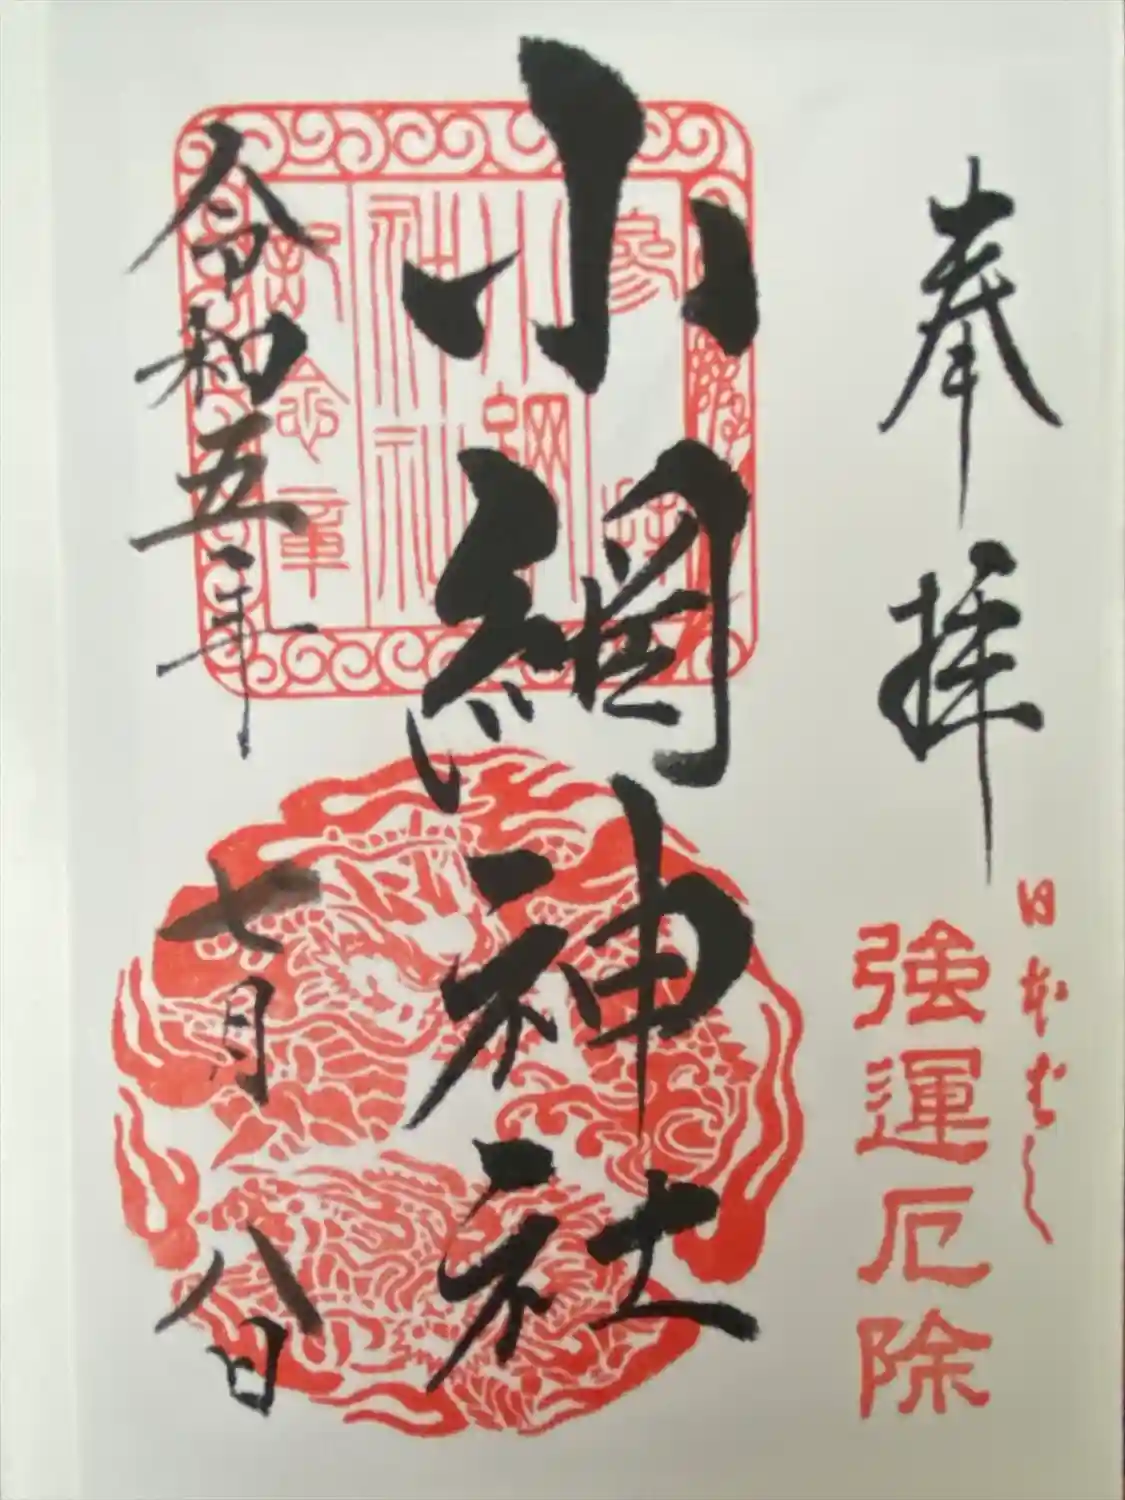 奉拝
日本ばし
強運厄除
小網神社
参拝
小網
神社
記念章
令和五年
七月
八日